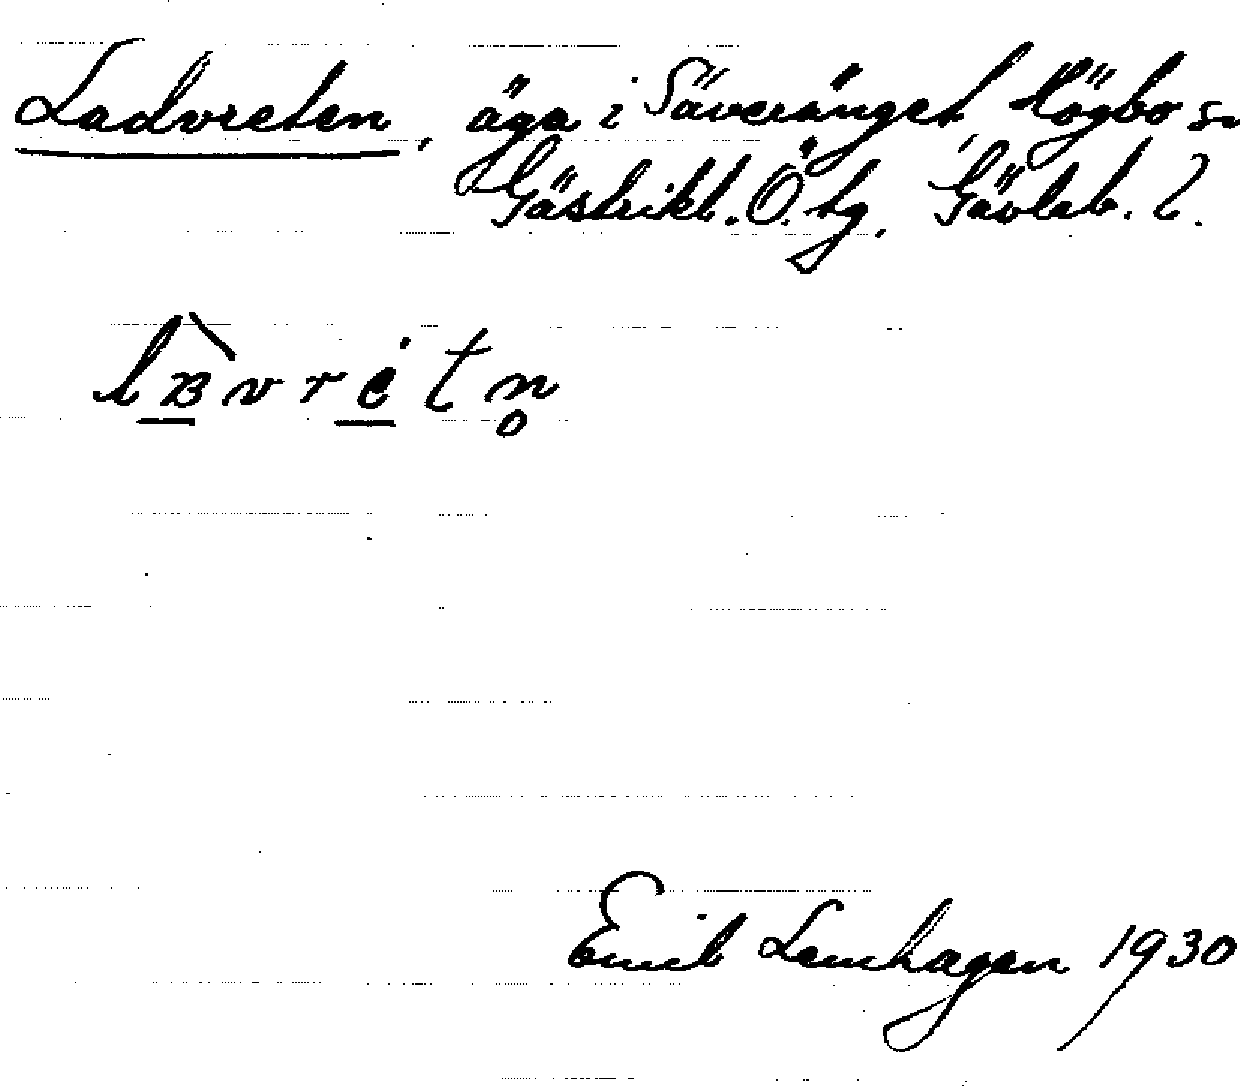 Ladvreten, äga i Säveränget Högbo sn
Gästrikl. Ö. tg. Gävleb. l.
Emil Lenhagen 1930